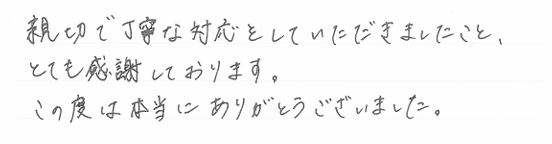 親切で丁寧な対応をしていただきましたこと、
とても感謝しております。
この度は本当にありがとうございました。